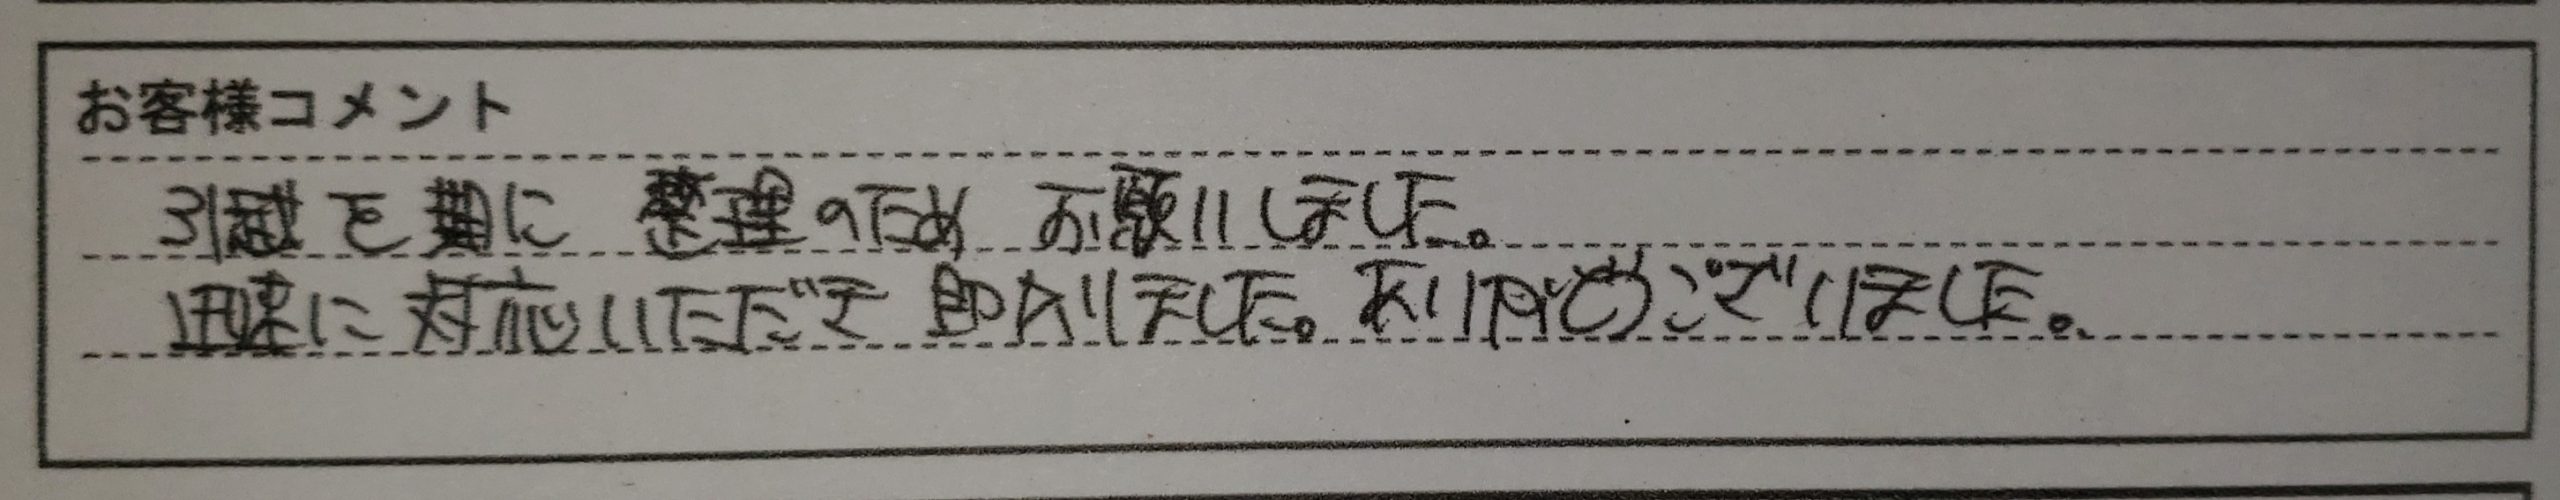 お客様コメント
引越を期に 整理のため お願いしました。
迅速に対応いただきて 助かりました。ありがとうございました。